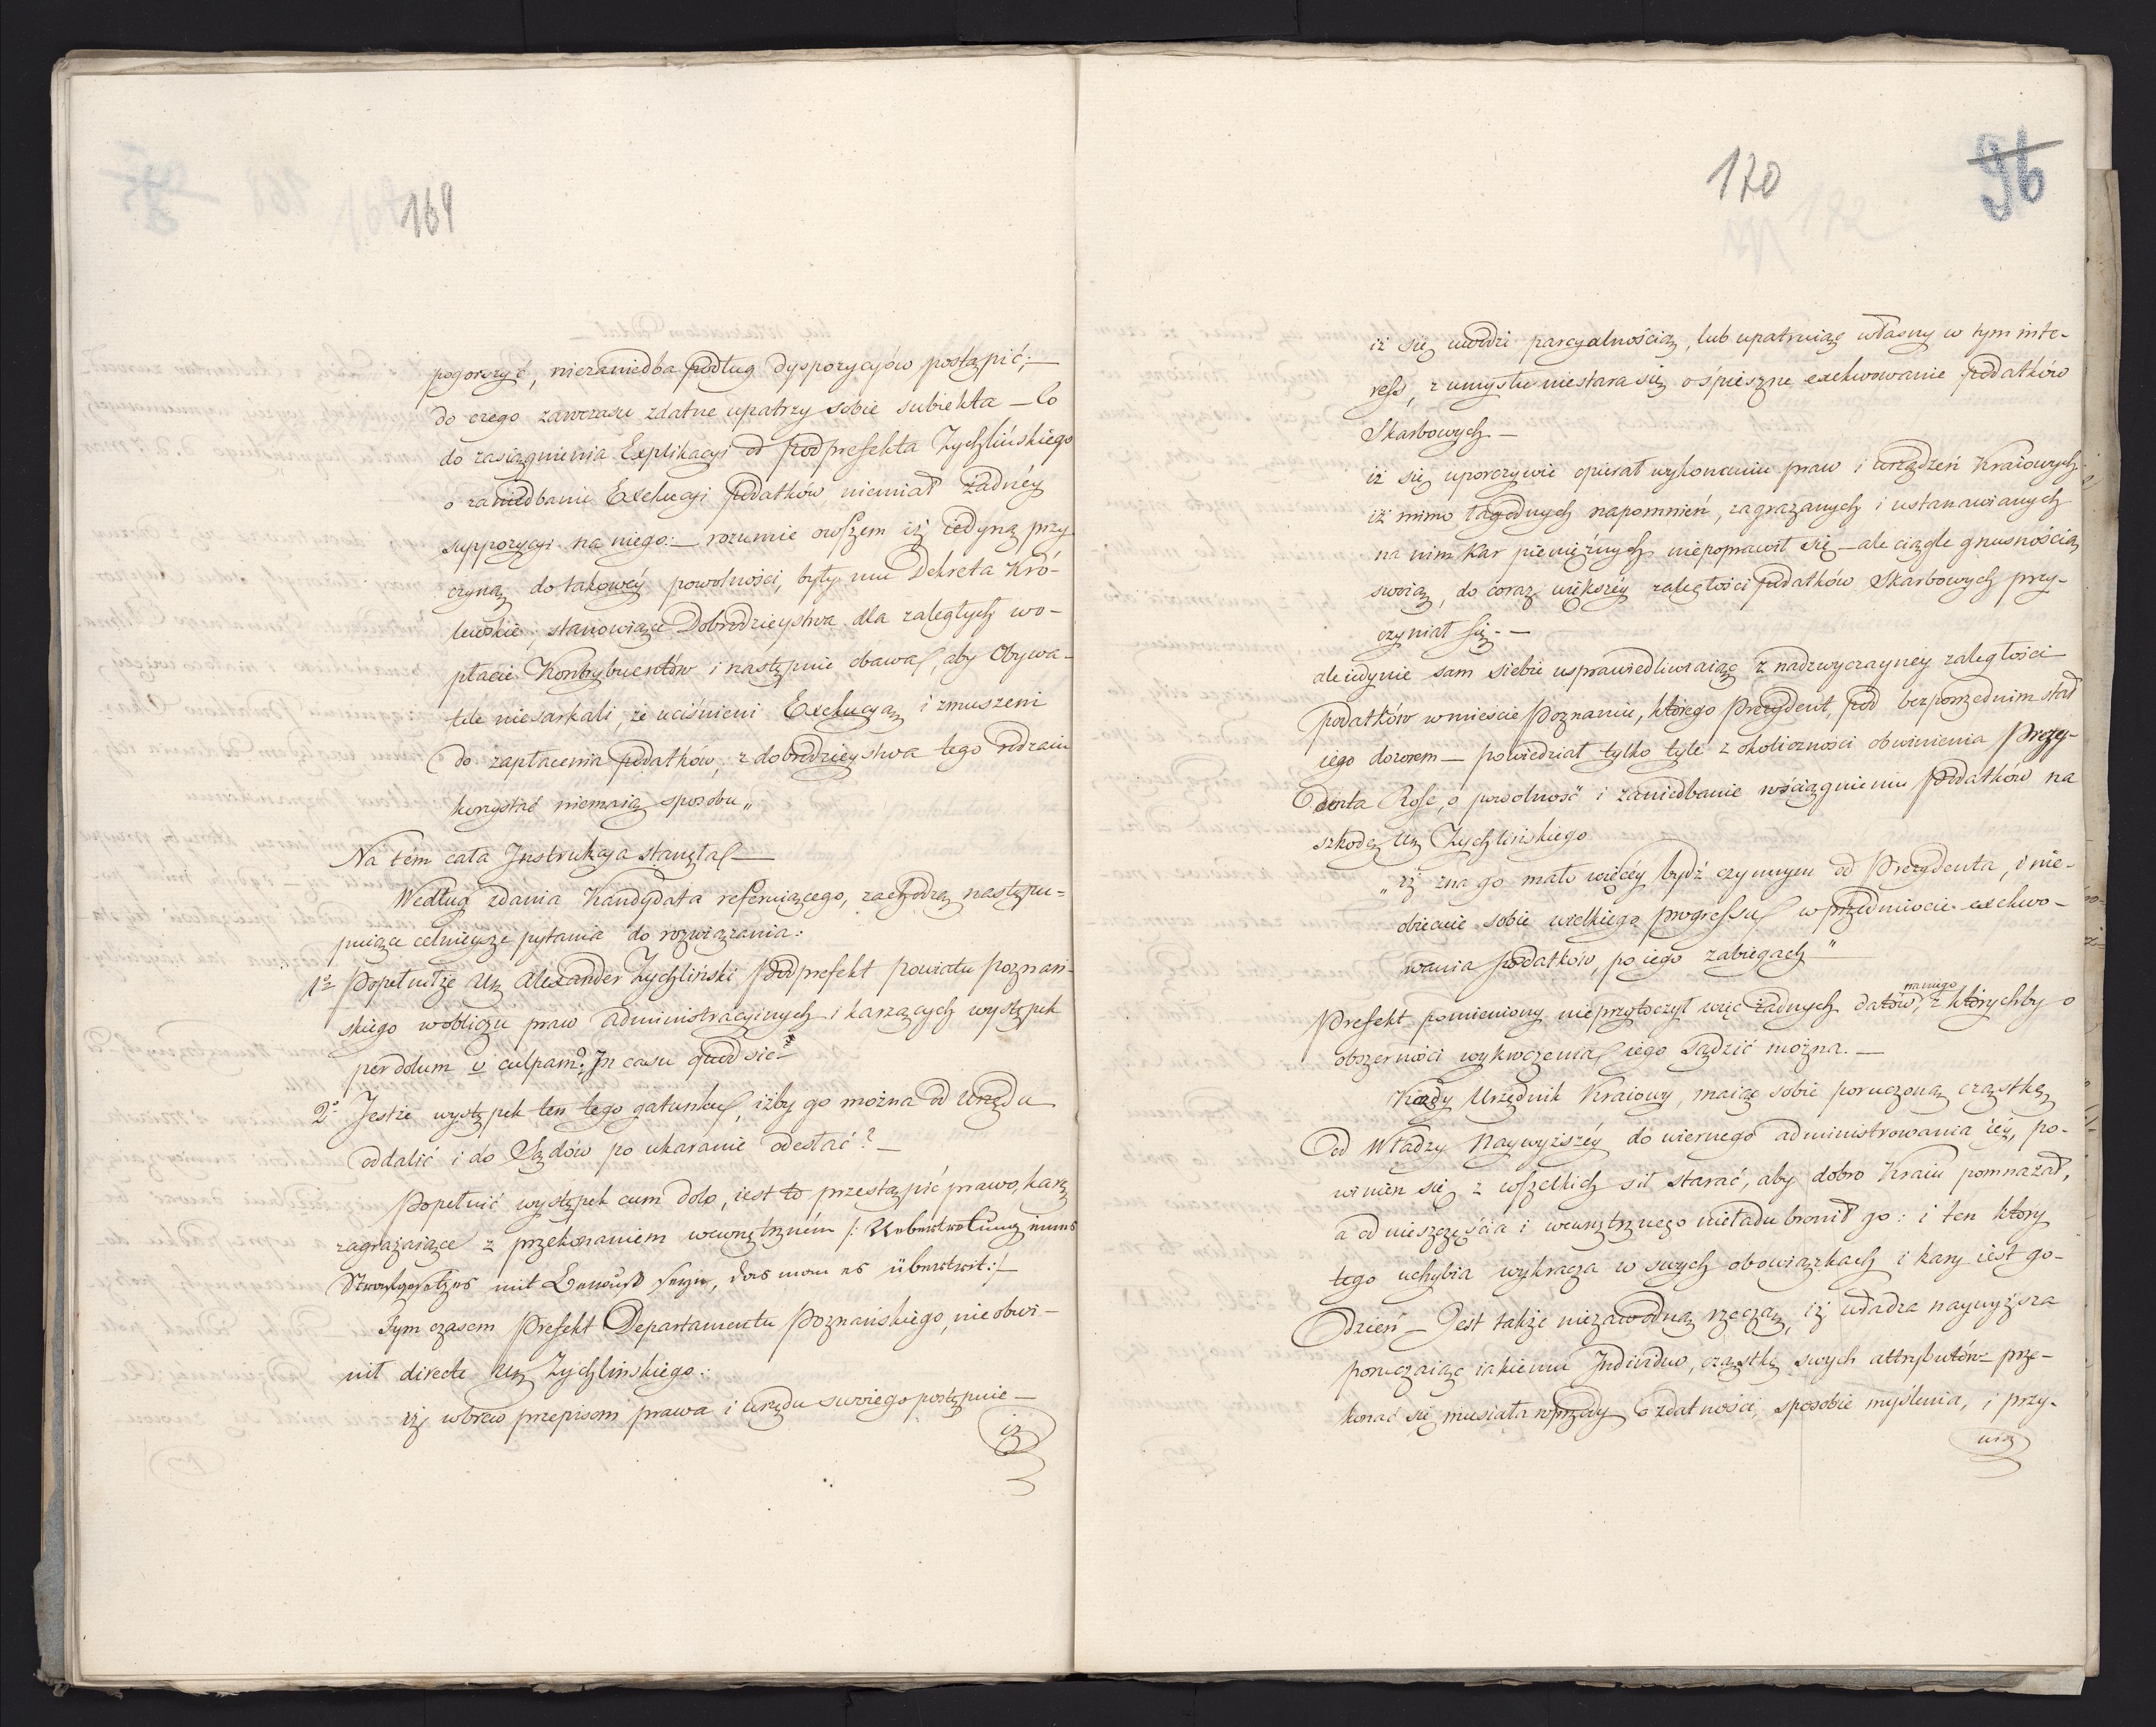 169
pogorszyć, niezaniedba podług dyspozycyów postąpić; —
do czego zawczasu zdatne upatrzy sobie subiekta — Co
do zasiągnienia Explikacyi od podprefekta Zychlińskiego
o zaniedbanie Exekucyi podatków, niemiał żadnéy
suppozycyi na niego: — rozumie owszem iż iedyną przy-
czyną do takowéy powolności, były mu Dekreta Kró-
lewskie, stanowiące Dobrodzieystwa dla zaległych wo-
płacie Kontrybuentów i następnie obawa, aby Obywa-
tele niesarkali, że uciśnieni Exekucyą i zmuszeni
do zapłacenia podatków, z dobrodzieystwa tego rodzaiu
korzystać niemaią sposobu„
Na tém cała Instrukcya stanęła —
Według zdania Kandydata referuiącego, zachodzą następu-
puiące celnieysze pytania do rozwiązania:
1o Popełniłże Ur Alexander Zychliński Podprefekt powiatu poznań-
skiego wobliczu praw administracyinych i karzących występek
per dolum v culpam? In casu quod sic
2o Jestże występek ten tego gatunku, iżby go można od Urzędu
oddalić i do Sądów po ukaranie odesłać? —
Popełnić występek cum dolo, iest to przestąpić prawo, karą
zagrażaiące z przekonaniem wewnętrzném /: Uebertretung eines
Strafgesetzes mit Bewußtseyn, das man es übertret :/ —
Tym czasem Prefekt Departamentu Poznańskiego, nieobwi-
nił directe Ur Zychlińskiego:
iż wbrew przepisom prawa i urzędu swoiego postępuie —
iż
170
96
iż się uwodzi parcyalnością, lub upatruiąc własny w tym inte-
ress, z umysłu niestara się o śpieszne exekwowanie podatków
Skarbowych —
iż się uporczywie opierał wykonaniu praw i urządzeń Kraiowych
iż mimo łagodnych napomnień, zagrażanych i ustanawianych
na nim Kar pieniężnych niepoprawił się — ale ciągle gnusnością
swoią, do coraz większéy zaległości podatków Skarbowych przy-
czyniał się. —
ale iedynie sam siebie usprawiedliwiaiąc z nadzwyczayney zaległości
podatków wmieście Poznaniu, którego Prezydent, pod bezpośrednim stał
iego dozorem — powiedział tylko tyle z okoliczności obwinienia Prezy-
denta Rose, o powolność i zaniedbanie wściągnieniu podatków na
szkodę Ur Zychlińskiego
„iż zna go mało więcéy bydź czynnym od Prezydenta, i nie-
obiecuie sobie wielkiego progressu wprzedmiocie exekwo-
wania podatków, po iego zabiegach"
Prefekt pomieniony nieprzytoczył więc żadnych datów, na niego z którychby o
obszerności wykroczenia iego sądzić można. —
Każdy Urzędnik Kraiowy, maiąc sobie poruczoną cząstkę
Od Władzy Naywyższéy do wiernego administrowania iéy, po-
winien się z wszelkich sił starać, aby dobro Kraiu pomnażał,
a od nieszczęścia i wewnętrznego nieładu bronił go: i ten który
tego uchybia wykracza w swych obowiązkach i kary iest go-
dzień — Jest także niezawodną rzeczą, iż władza naywyższa
poruczaiąc iakiemu Individuo, cząstkę swych attrybutów prze-
konać się musiała wprzódy o zdatności, sposobie myślenia, i przy-
wią